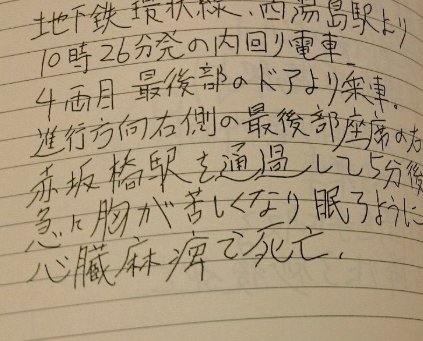 地下鉄環状線、西湯島駅より
10時26分発の内回り電車。
4両目 最後部のドアより乗車。
進行方向右側の最後部座席の右
赤坂橋駅を通過して5分後
急に胸が苦しくなり眠るように
心臓麻痺で死亡.